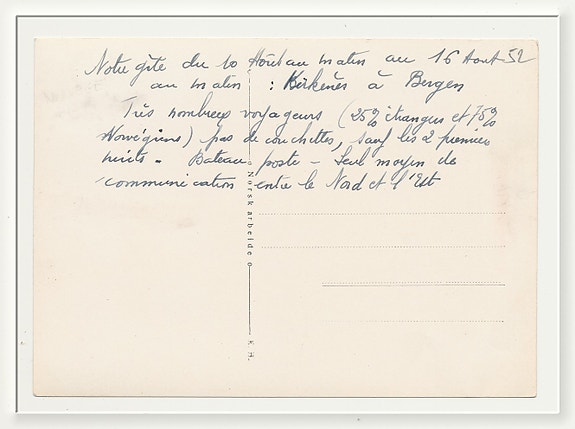 Notre gîte du 10 Août au matin au 16 Aout 52
au matin : Kirkenès à Bergen
Très nombreux voyageurs (25% étrangers et 75%
Norvégiens) pas de couchettes, sauf les 2 premières
nuits - Bateau poste - Seul moyen de
communication entre le Nord et l'Est
Norsk arbeide
K. H.